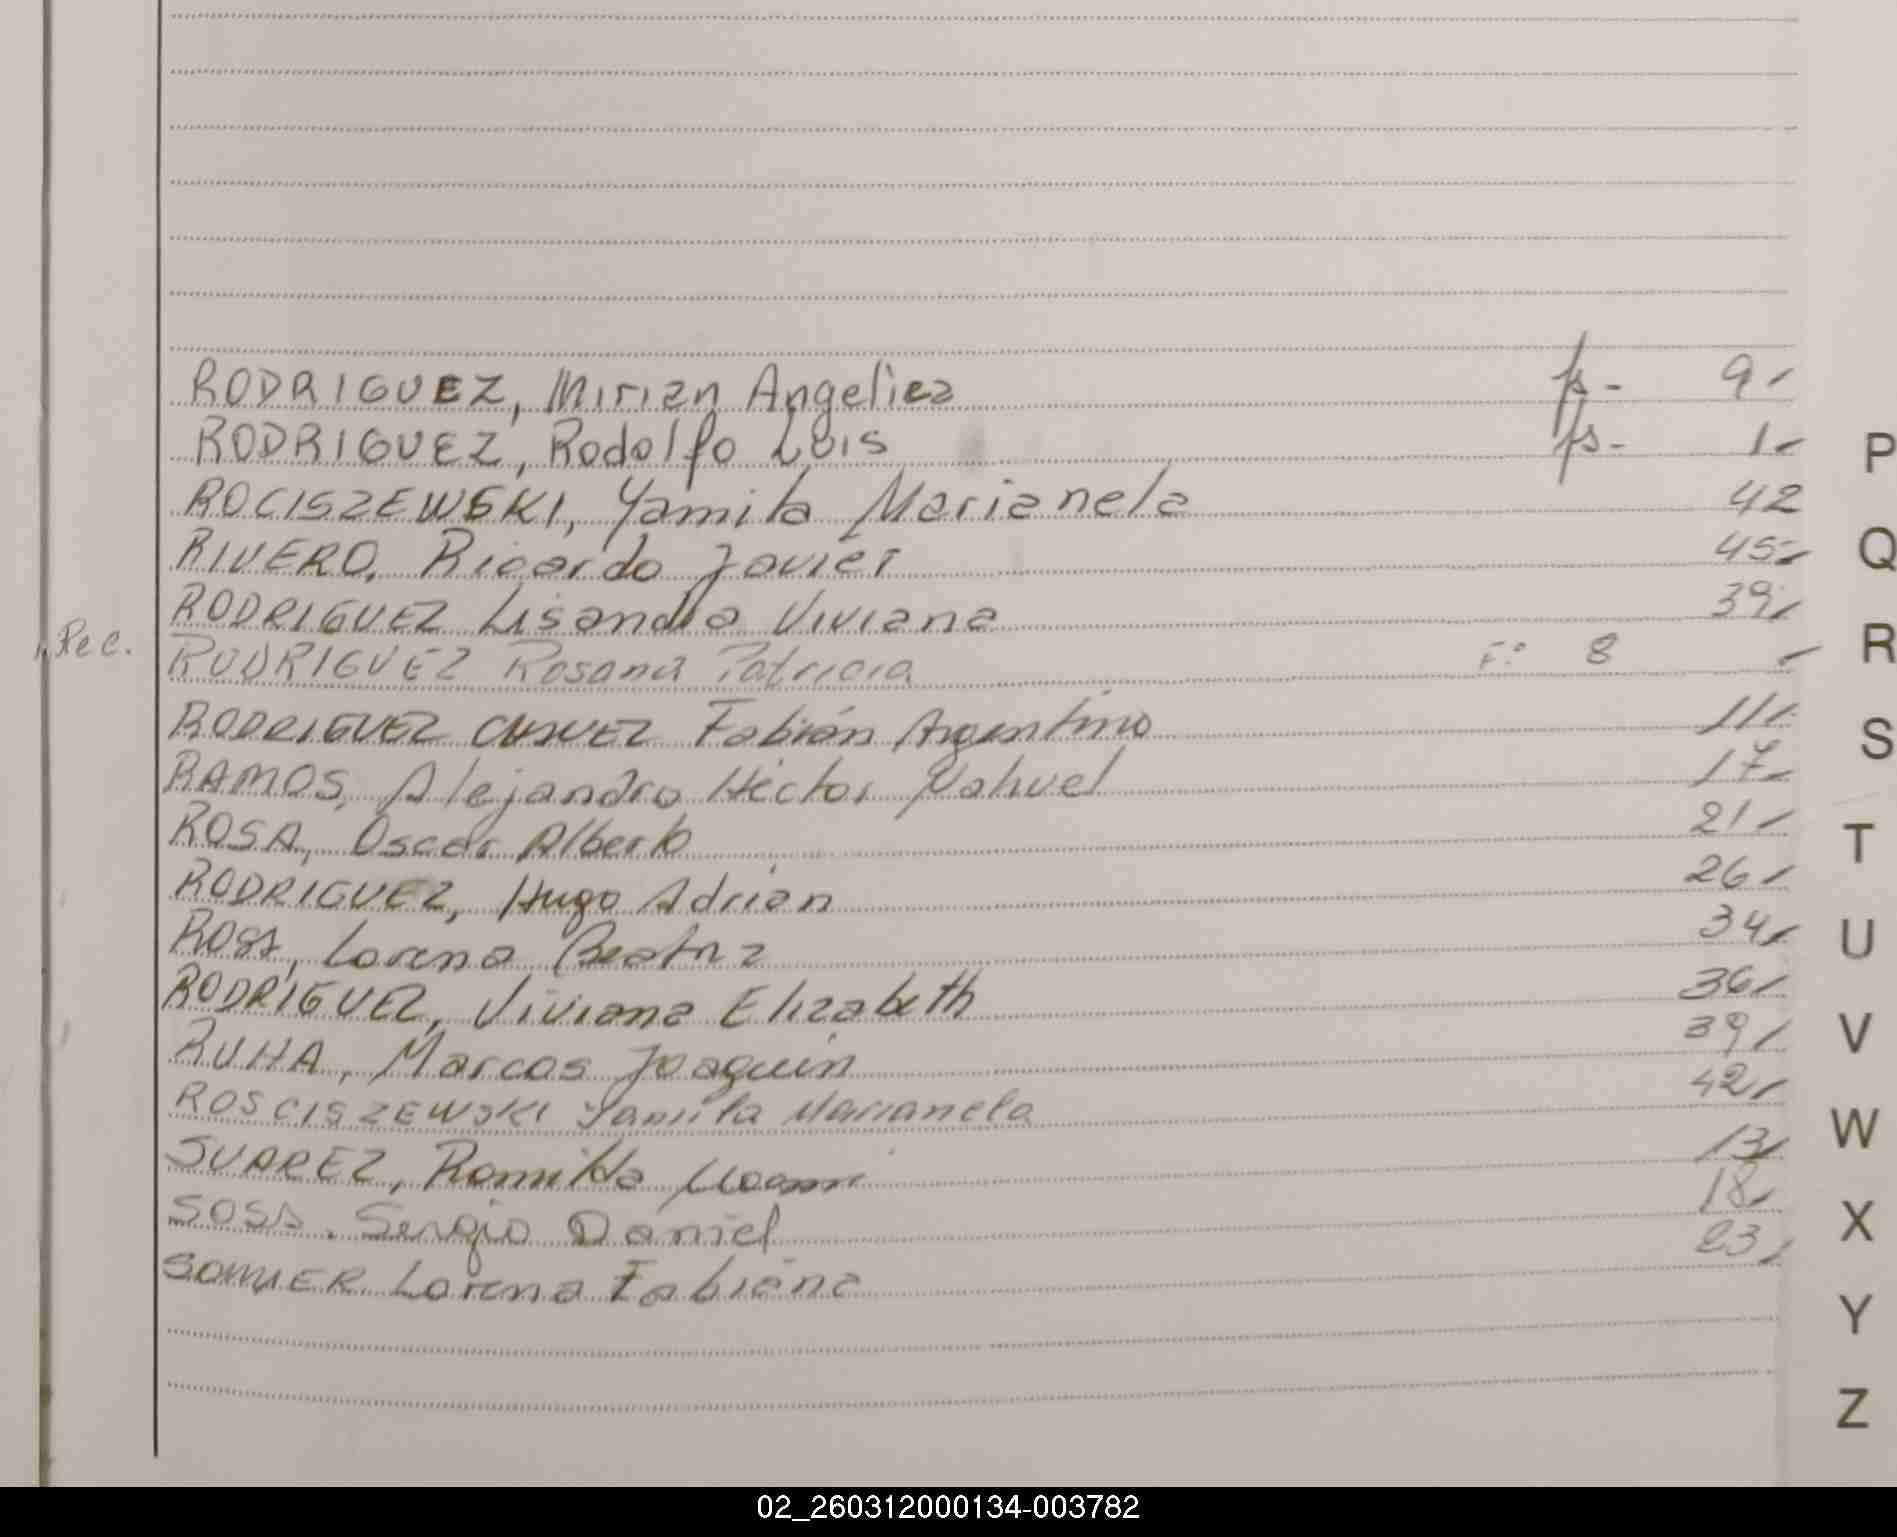 RODRIGUEZ, Mirian Angelica fs- 9
RODRIGUEZ, Rodolfo Luis fs- 1
ROCISZEWSKI, Yamila Marianela 42
RIVERO, Ricardo Javier 45
RODRIGUEZ Lisandra Viviana 39
Rec. RODRIGUEZ Rosana Patricia Fº 8
RODRIGUEZ Fabián Argentino 11
RAMOS, Alejandro Héctor Nahuel 17
ROSA, Oscar Alberto 21
RODRIGUEZ, Hugo Adrián 26
Lorena Beatriz 34
RODRIGUEZ, Viviana Elizabeth 36
RUHA, Marcos Joaquín 39
ROSCISZEWSKI Yamila Marianela 42
SUAREZ, Romilda 13
SOSA, Sergio Daniel 18
Lorena Fabiana 23
P
Q
R
S
T
U
V
W
X
Y
Z
02_260312000134-003782